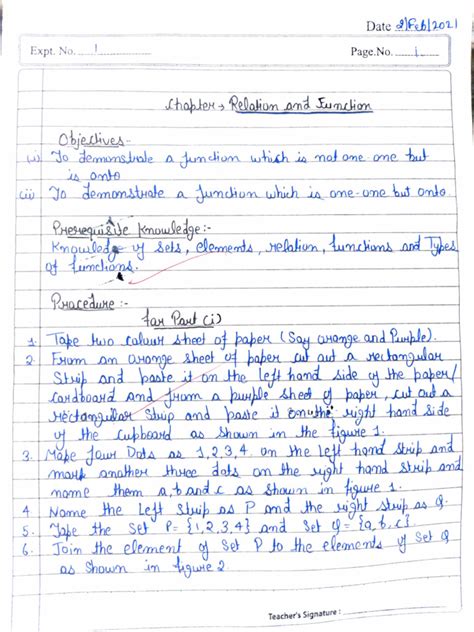 Date 2/Feb/2021
Expt. No. 1 Page.No. 1
Chapter → Relation and Function
Objectives-
(i) To demonstrate a function which is not one one but
is onto
(ii) To demonstrate a function which is one-one but onto.
Prerequisite Knowledge:-
Knowledge of sets, elements, relation, functions and Types
of functions.
Procedure :-
for Part (i)
1. Take two colour sheet of paper (Say orange and Purple).
2. From an orange sheet of paper cut out a rectangular
Strip and paste it on the left hand side of the paper/
cardboard and from a purple sheet of paper, cut out a
rectangular Strip and paste it on the right hand side
of the Cupboard as shown in the figure 1.
3. Make four Dots as 1,2,3,4 on the left hand strip and
mark another three dots on the right hand strip and
name them a,b and c as shown in figure 1.
4 Name the Left Strip as P and the right strip as Q.
5. Take the Set P= {1,2,3,4} and Set Q = {a,b,c}
6. Join the element of Set P to the elements of Set Q
as Shown in figure 2.
Teacher's Signature :